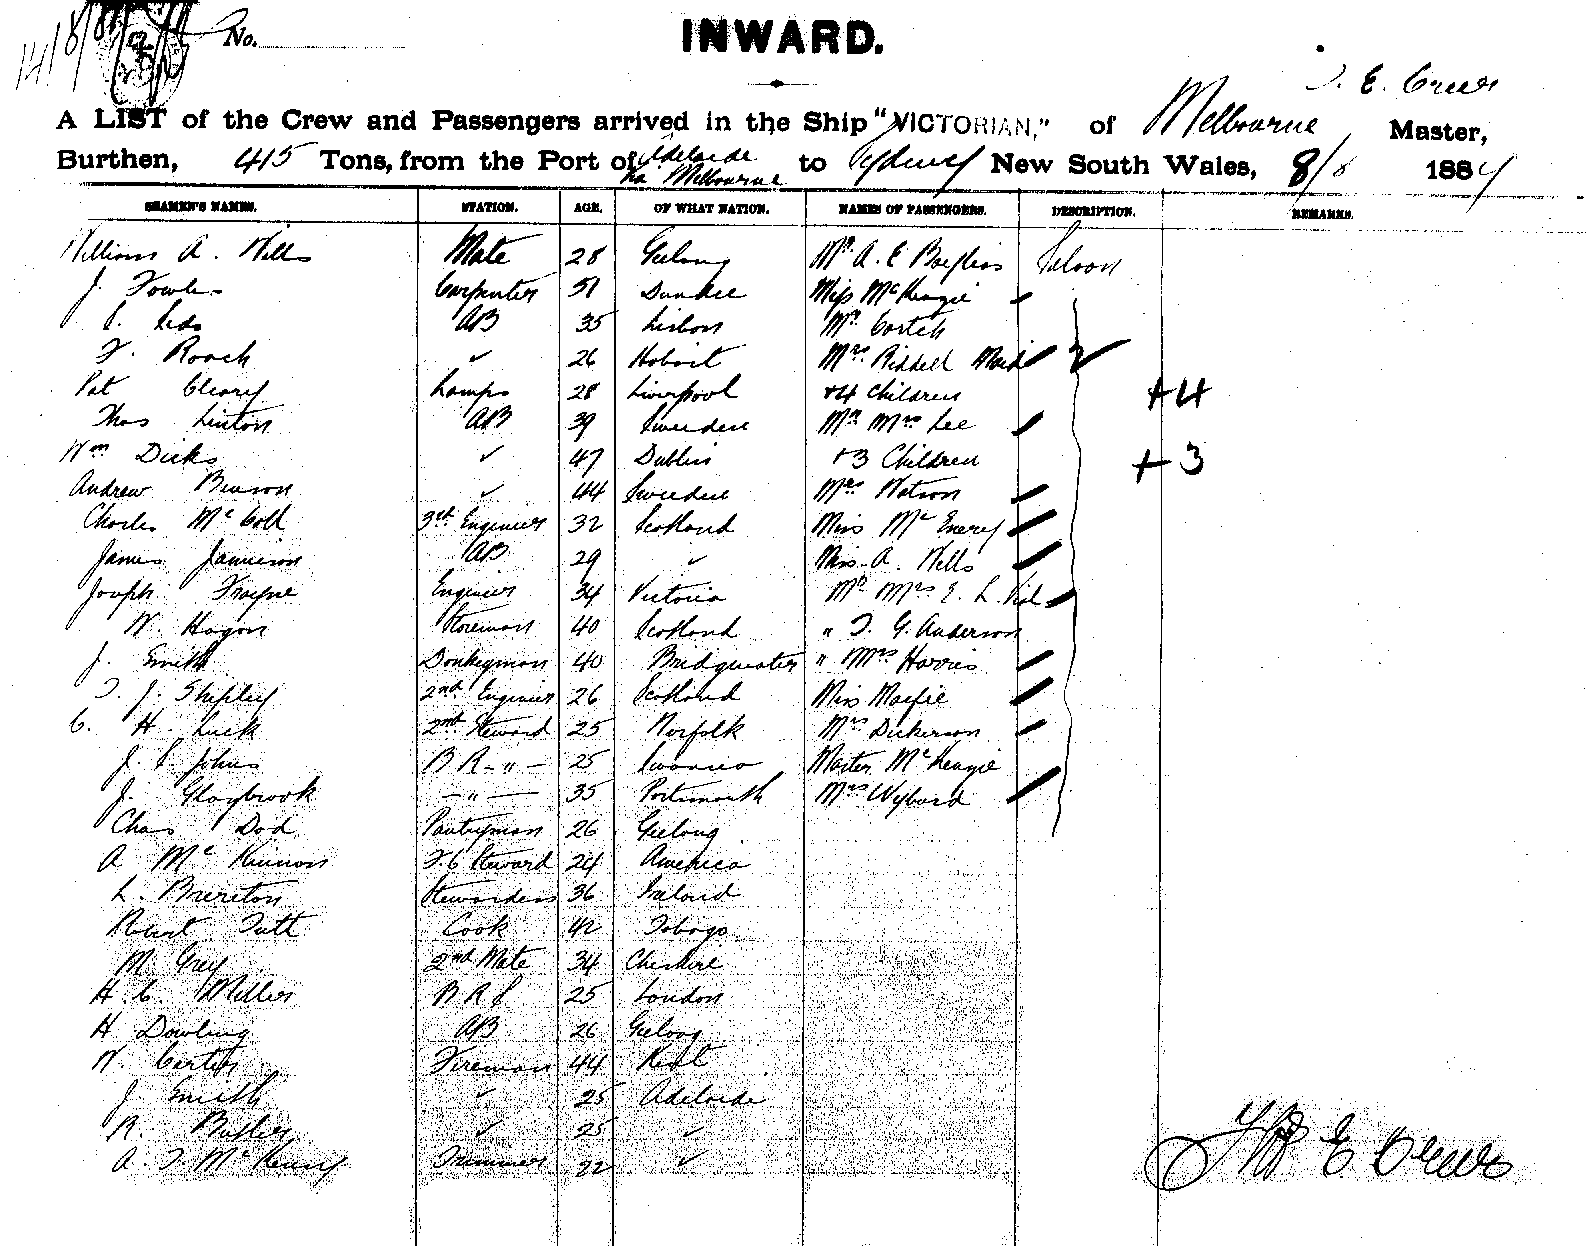 14/8/84 No.
INWARD.
T. E. Creer
A LIST of the Crew and Passengers arrived in the Ship "VICTORIAN," of Melbourne, Master,
Burthen, 415 Tons, from the Port of Adelaide via Melbourne to Sydney New South Wales, 8/8 1884
SEAMEN'S NAMES. STATION. AGE. OF WHAT NATION. NAMES OF PASSENGERS. DESCRIPTION. REMARKS.
William A. Wills Mate 28 Geelong Mr. A. E. Saloon
J. Fowler Carpenter 51 Dundee Miss McKenzie
AB 35 Lisbon Mr
F. Roach " 26 Hobart Mrs Riddell Maid
Pat Cleary Lamps 28 Liverpool +4 Children +4
Thos Linton AB 39 Sweeden Mr Mrs Lee
Wm Dicks " 47 Dublin +3 Children +3
Andrew Benson " 44 Sweeden Mrs Watson
Charles McColl 3rd Engineer 32 Scotland Miss McEnery
James Jamieson AB 29 " Miss A. Wells
Joseph Frayne Engineer 34 Victoria Mr Mrs E. L.
W. Hagon Storeman 40 Scotland " T. G. Anderson
J. Smith Donkeyman 40 Bridgwater " Mrs Harris
T. J. Shipley 2nd Engineer 26 Scotland Miss Macfie
C. H. Luck 2nd Steward 25 Norfolk Mrs Dickerson
J. S. Johns B R - " - 25 Swansea Master McKenzie
J. Glaybrook - " - 35 Portsmouth Mrs Wybord
Chas Dod Pantryman 26 Geelong
A McKinnon F.C Steward 24 America
L. Brereton Stewardess 36 Ireland
Robert Tutt Cook 42 Tobago
M. Grey 2nd Mate 34 Cheshire
H. C. Miller B R S 25 London
H Dowling AB 26 Geelong
W. Carter Fireman 44 Kent
J Smith " 25 Adelaide
R. Butler " 25 "
A. T. McKenzy Trimmer 22 "
Thos E Creer